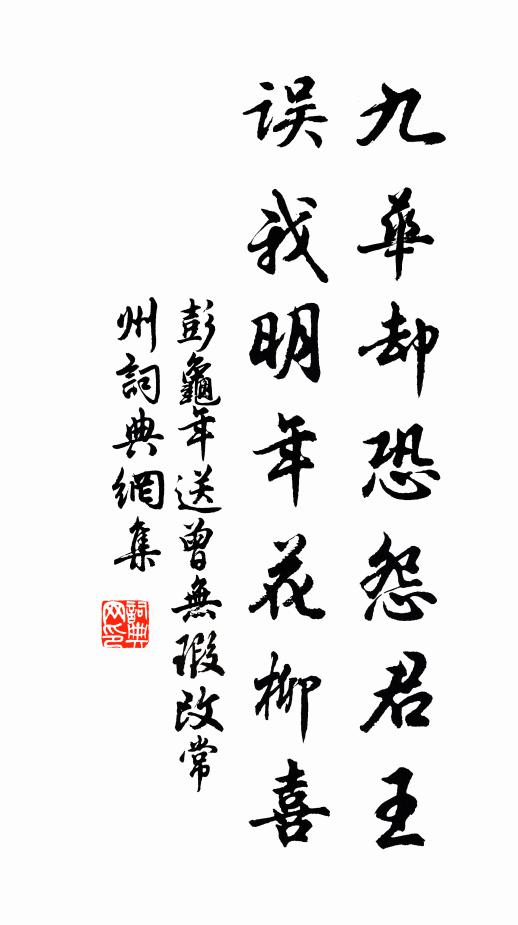 九華却恐怨君王
误我明年花柳喜
彭龜年送曾無瑕改常
州詞典網集
詞典
网印